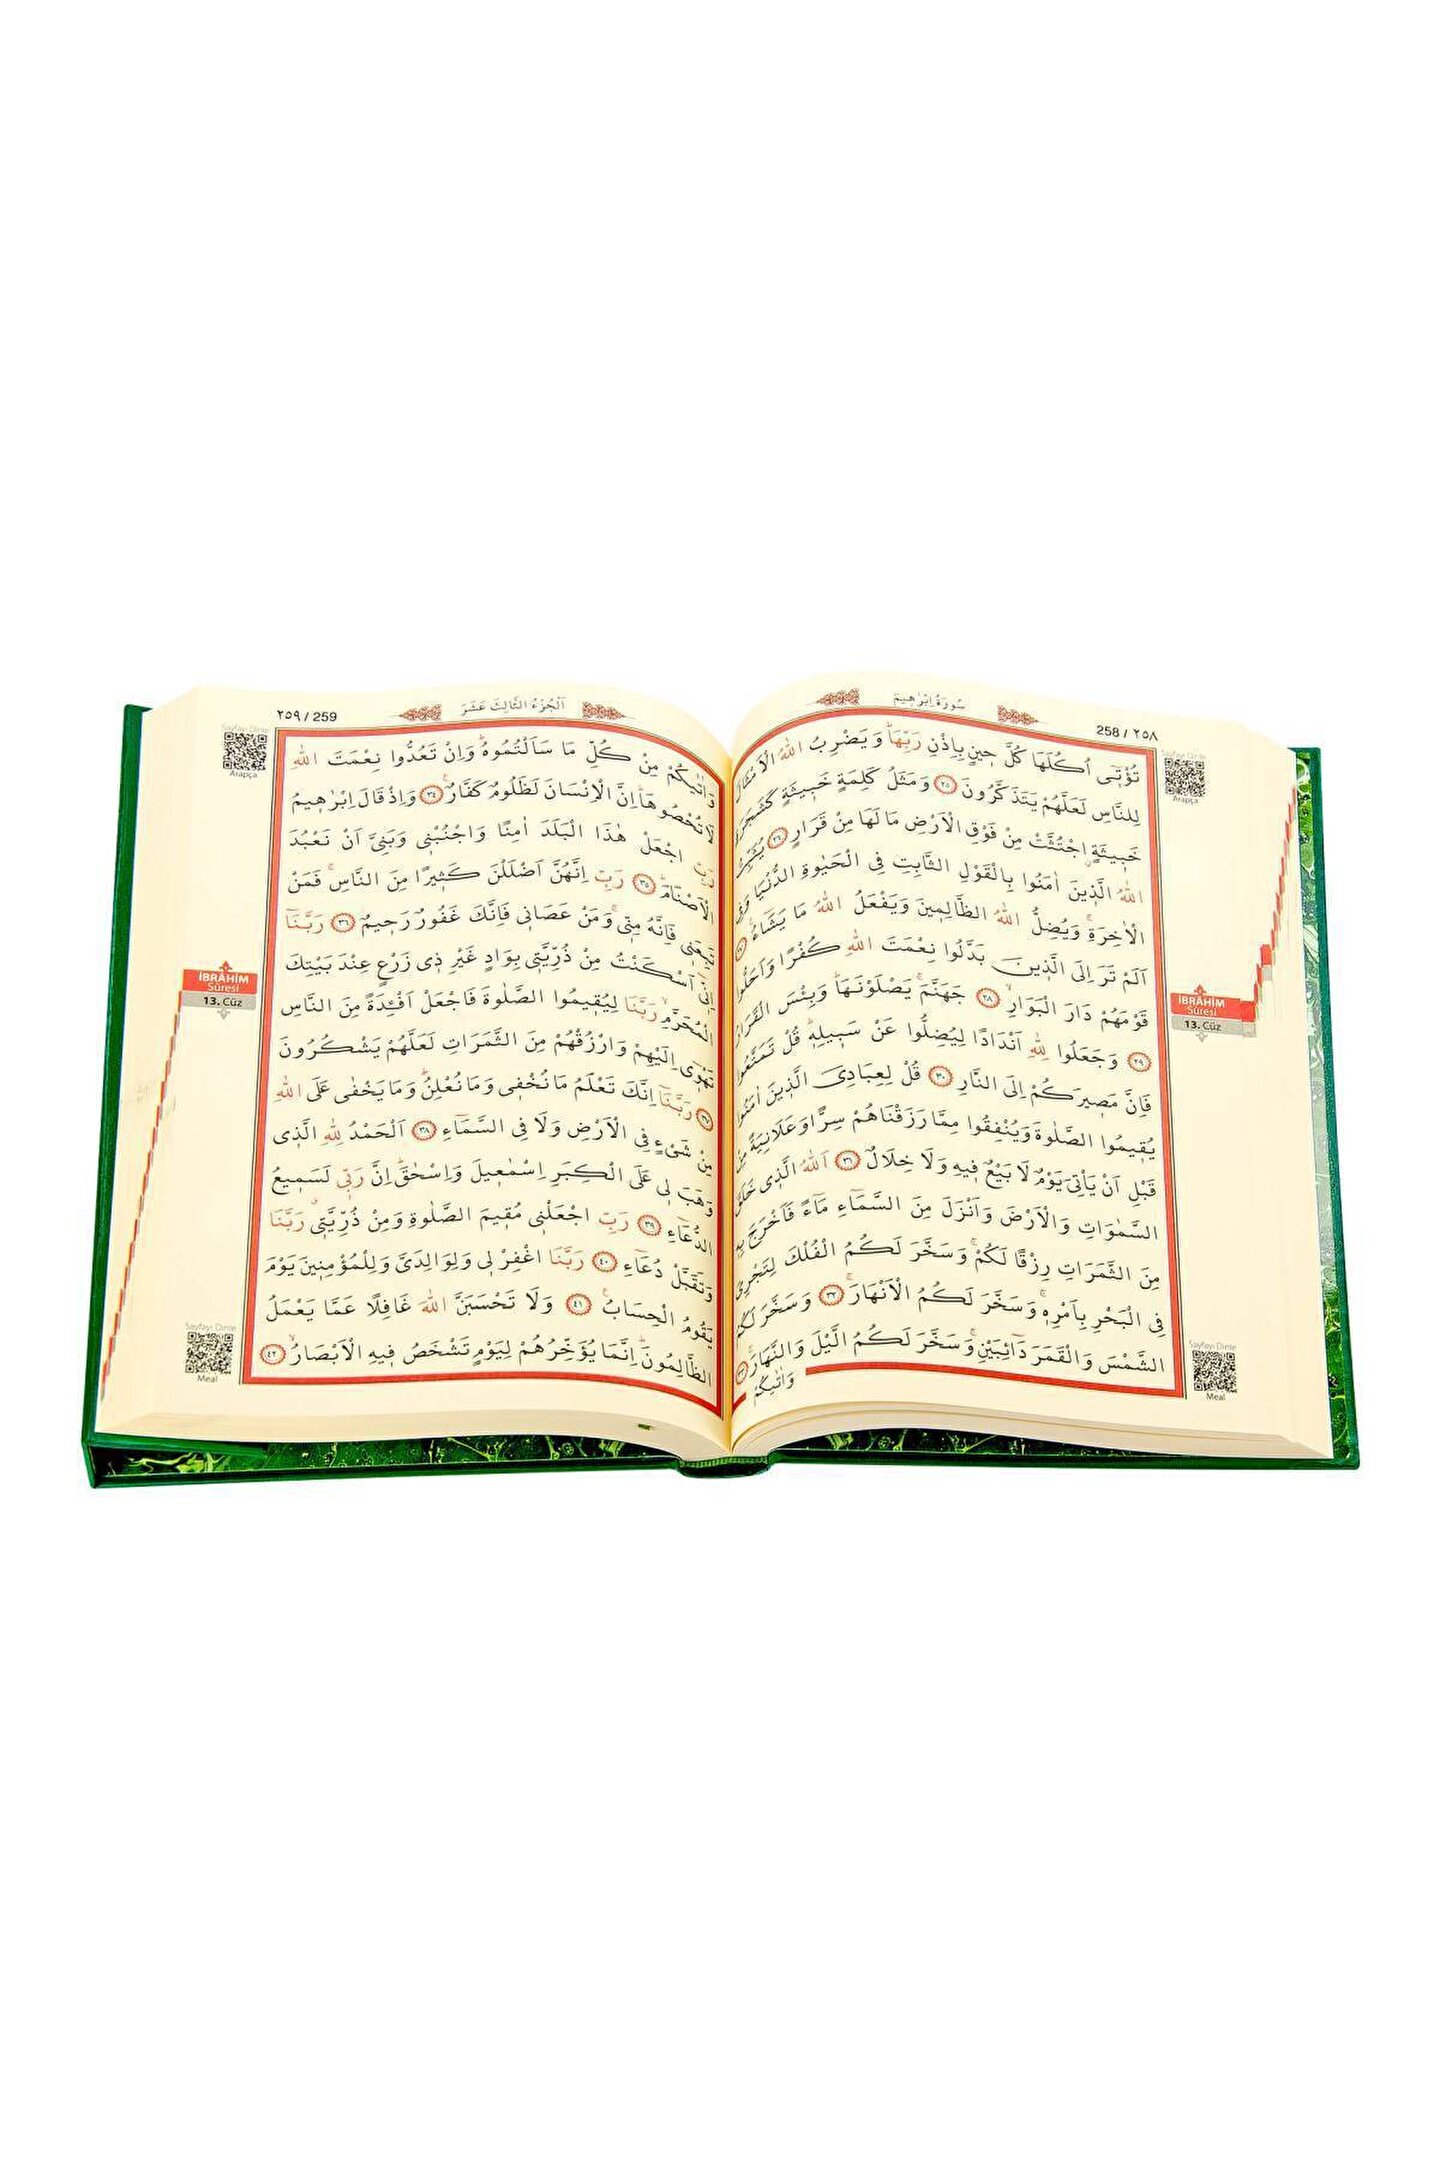 سُورَةُ اِبْرٰه۪يمَ
258 / ٢٥٨
Sayfayı Dinle
Arapça
تُؤْت۪ٓي اُكُلَهَا كُلَّ ح۪ينٍ بِاِذْنِ رَبِّهَاۜ وَيَضْرِبُ اللّٰهُ الْاَمْثَالَ
لِلنَّاسِ لَعَلَّهُمْ يَتَذَكَّرُونَ ﴿٢٥﴾ وَمَثَلُ كَلِمَةٍ خَب۪يثَةٍ كَشَجَرَةٍ
خَب۪يثَةٍۨ اجْتُثَّتْ مِنْ فَوْقِ الْاَرْضِ مَا لَهَا مِنْ قَرَارٍ ﴿٢٦﴾ يُثَبِّتُ
اللّٰهُ الَّذ۪ينَ اٰمَنُوا بِالْقَوْلِ الثَّابِتِ فِي الْحَيٰوةِ الدُّنْيَا وَفِي
الْاٰخِرَةِۚ وَيُضِلُّ اللّٰهُ الظَّالِم۪ينَ وَيَفْعَلُ اللّٰهُ مَا يَشَٓاءُ۟ ﴿٢٧﴾
اَلَمْ تَرَ اِلَى الَّذ۪ينَ بَدَّلُوا نِعْمَتَ اللّٰهِ كُفْرًا وَاَحَلُّوا
قَوْمَهُمْ دَارَ الْبَوَارِۙ ﴿٢٨﴾ جَهَنَّمَۚ يَصْلَوْنَهَاۜ وَبِئْسَ الْقَرَارُ
﴿٢٩﴾ وَجَعَلُوا لِلّٰهِ اَنْدَادًا لِيُضِلُّوا عَنْ سَب۪يلِه۪ۜ قُلْ تَمَتَّعُوا
فَاِنَّ مَص۪يرَكُمْ اِلَى النَّارِ ﴿٣٠﴾ قُلْ لِعِبَادِيَ الَّذ۪ينَ اٰمَنُوا
يُق۪يمُوا الصَّلٰوةَ وَيُنْفِقُوا مِمَّا رَزَقْنَاهُمْ سِرًّا وَعَلَانِيَةً مِنْ
قَبْلِ اَنْ يَأْتِيَ يَوْمٌ لَا بَيْعٌ ف۪يهِ وَلَا خِلَالٌ ﴿٣١﴾ اَللّٰهُ الَّذ۪ي خَلَقَ
السَّمٰوَاتِ وَالْاَرْضَ وَاَنْزَلَ مِنَ السَّمَٓاءِ مَٓاءً فَاَخْرَجَ بِه۪
مِنَ الثَّمَرَاتِ رِزْقًا لَكُمْۚ وَسَخَّرَ لَكُمُ الْفُلْكَ لِتَجْرِيَ
فِي الْبَحْرِ بِاَمْرِه۪ۚ وَسَخَّرَ لَكُمُ الْاَنْهَارَۚ ﴿٣٢﴾ وَسَخَّرَ لَكُمُ
الشَّمْسَ وَالْقَمَرَ دَٓائِبَيْنِۚ وَسَخَّرَ لَكُمُ الَّيْلَ وَالنَّهَارَۚ ﴿٣٣﴾
وَاٰتٰيكُمْ
İBRÂHİM
Sûresi
13. Cüz
Sayfayı Dinle
Meal
اَلْجُزْءُ الثَّالِثَ عَشَرَ
٢٥٩ / 259
Sayfayı Dinle
Arapça
وَاٰتٰيكُمْ مِنْ كُلِّ مَا سَاَلْتُمُوهُۜ وَاِنْ تَعُدُّوا نِعْمَتَ اللّٰهِ
لَا تُحْصُوهَاۜ اِنَّ الْاِنْسَانَ لَظَلُومٌ كَفَّارٌ۟ ﴿٣٤﴾ وَاِذْ قَالَ اِبْرٰه۪يمُ
رَبِّ اجْعَلْ هٰذَا الْبَلَدَ اٰمِنًا وَاجْنُبْن۪ي وَبَنِيَّ اَنْ نَعْبُدَ
الْاَصْنَامَۜ ﴿٣٥﴾ رَبِّ اِنَّهُنَّ اَضْلَلْنَ كَث۪يرًا مِنَ النَّاسِۚ فَمَنْ
تَبِعَن۪ي فَاِنَّهُ مِنّ۪يۚ وَمَنْ عَصَان۪ي فَاِنَّكَ غَفُورٌ رَح۪يمٌ ﴿٣٦﴾ رَبَّنَٓا
اِنّ۪ٓي اَسْكَنْتُ مِنْ ذُرِّيَّت۪ي بِوَادٍ غَيْرِ ذ۪ي زَرْعٍ عِنْدَ بَيْتِكَ
الْمُحَرَّمِۙ رَبَّنَا لِيُق۪يمُوا الصَّلٰوةَ فَاجْعَلْ اَفْـِٔدَةً مِنَ النَّاسِ
تَهْو۪ٓي اِلَيْهِمْ وَارْزُقْهُمْ مِنَ الثَّمَرَاتِ لَعَلَّهُمْ يَشْكُرُونَ
﴿٣٧﴾ رَبَّنَٓا اِنَّكَ تَعْلَمُ مَا نُخْف۪ي وَمَا نُعْلِنُۜ وَمَا يَخْفٰى عَلَى اللّٰهِ
مِنْ شَيْءٍ فِي الْاَرْضِ وَلَا فِي السَّمَٓاءِ ﴿٣٨﴾ اَلْحَمْدُ لِلّٰهِ الَّذ۪ي
وَهَبَ ل۪ي عَلَى الْكِبَرِ اِسْمٰع۪يلَ وَاِسْحٰقَۜ اِنَّ رَبّ۪ي لَسَم۪يعُ
الدُّعَٓاءِ ﴿٣٩﴾ رَبِّ اجْعَلْن۪ي مُق۪يمَ الصَّلٰوةِ وَمِنْ ذُرِّيَّت۪يۗ رَبَّنَا
وَتَقَبَّلْ دُعَٓاءِ ﴿٤٠﴾ رَبَّنَا اغْفِرْ ل۪ي وَلِوَالِدَيَّ وَلِلْمُؤْمِن۪ينَ يَوْمَ
يَقُومُ الْحِسَابُ۟ ﴿٤١﴾ وَلَا تَحْسَبَنَّ اللّٰهَ غَافِلًا عَمَّا يَعْمَلُ
الظَّالِمُونَۜ اِنَّمَا يُؤَخِّرُهُمْ لِيَوْمٍ تَشْخَصُ ف۪يهِ الْاَبْصَارُۙ ﴿٤٢﴾
İBRÂHİM
Sûresi
13. Cüz
Sayfayı Dinle
Meal